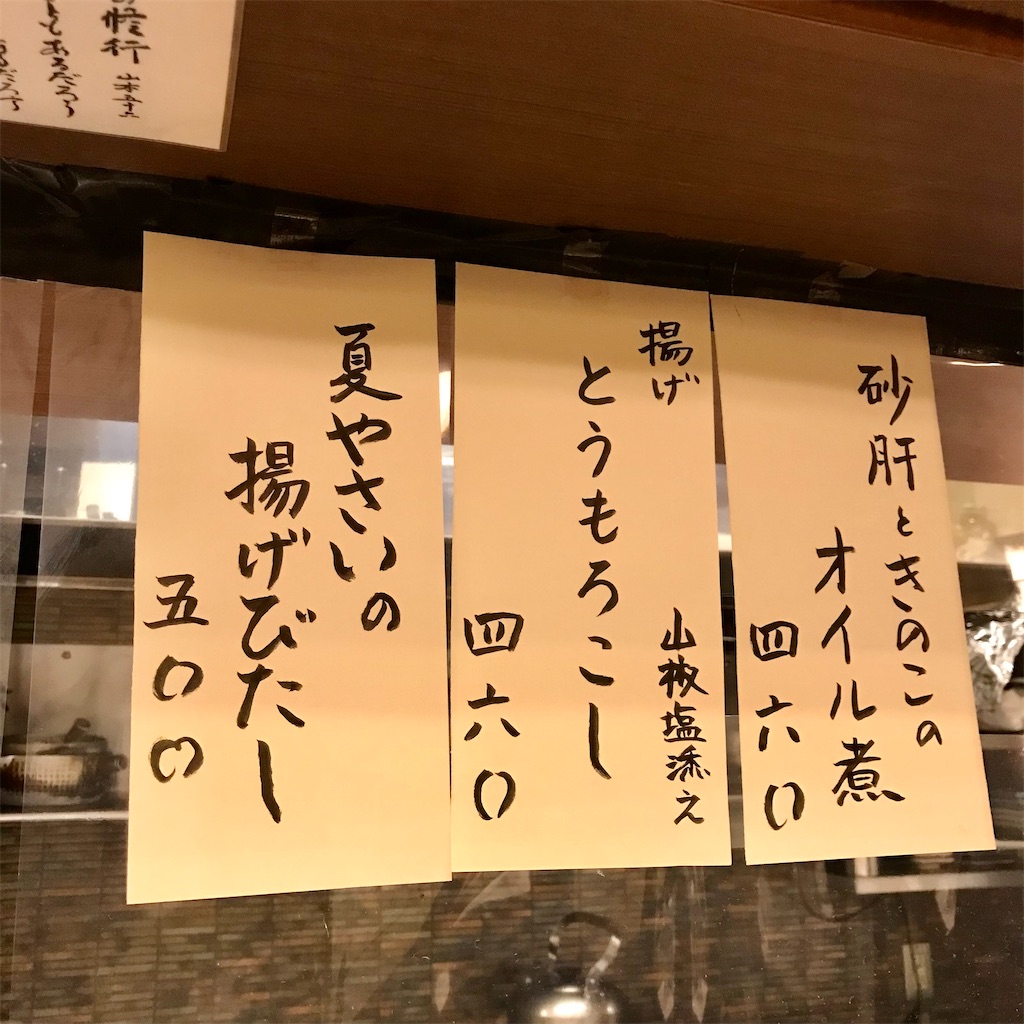 砂肝ときのこの
オイル煮
四六〇
揚げ
とうもろこし
山椒塩添え
四六〇
夏やさいの
揚げびたし
五〇〇
修行
山本五十六
こともあるだろう